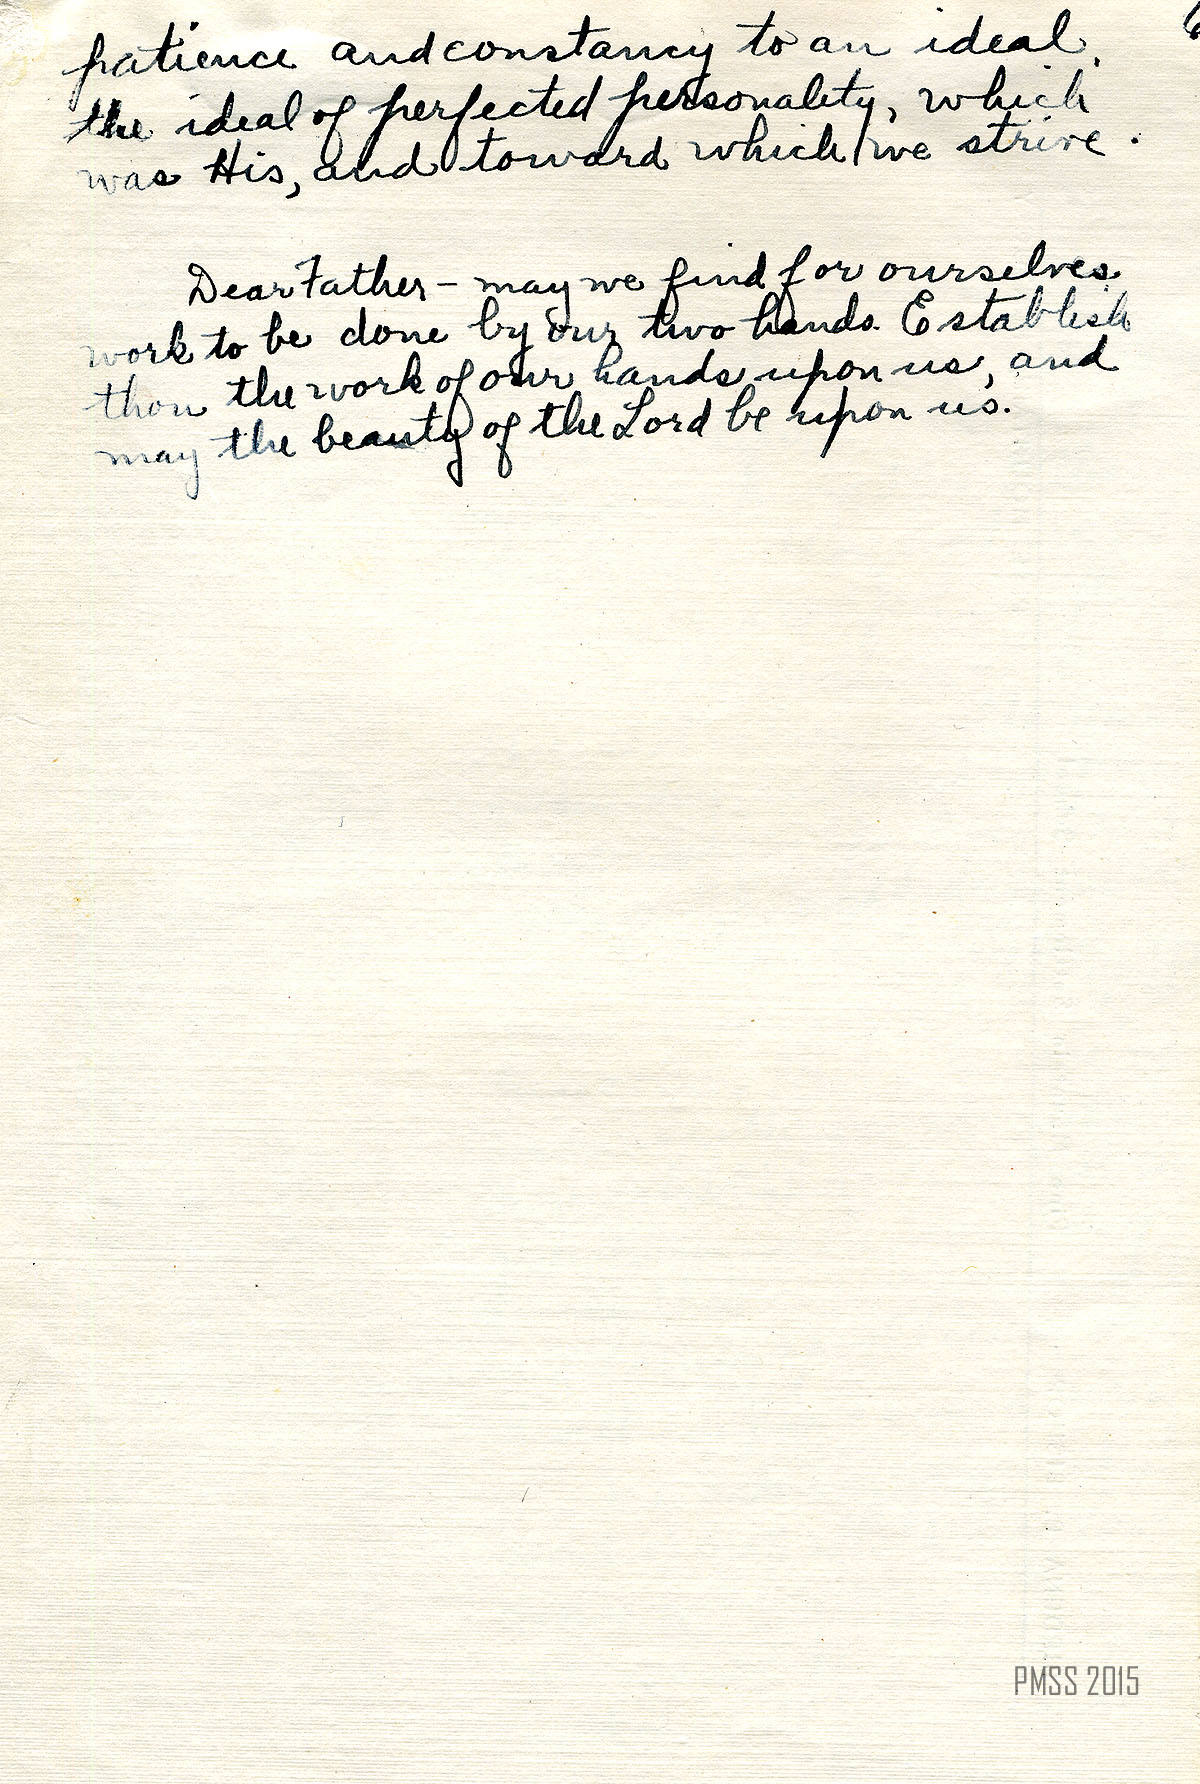 patience and constancy to an ideal,
the ideal of perfected personality, which
was His, and toward which we strive.
Dear Father - may we find for ourselves
work to be done by our two hands. Establish
thou the work of our hands upon us, and
may the beauty of the Lord be upon us.
PMSS 2015